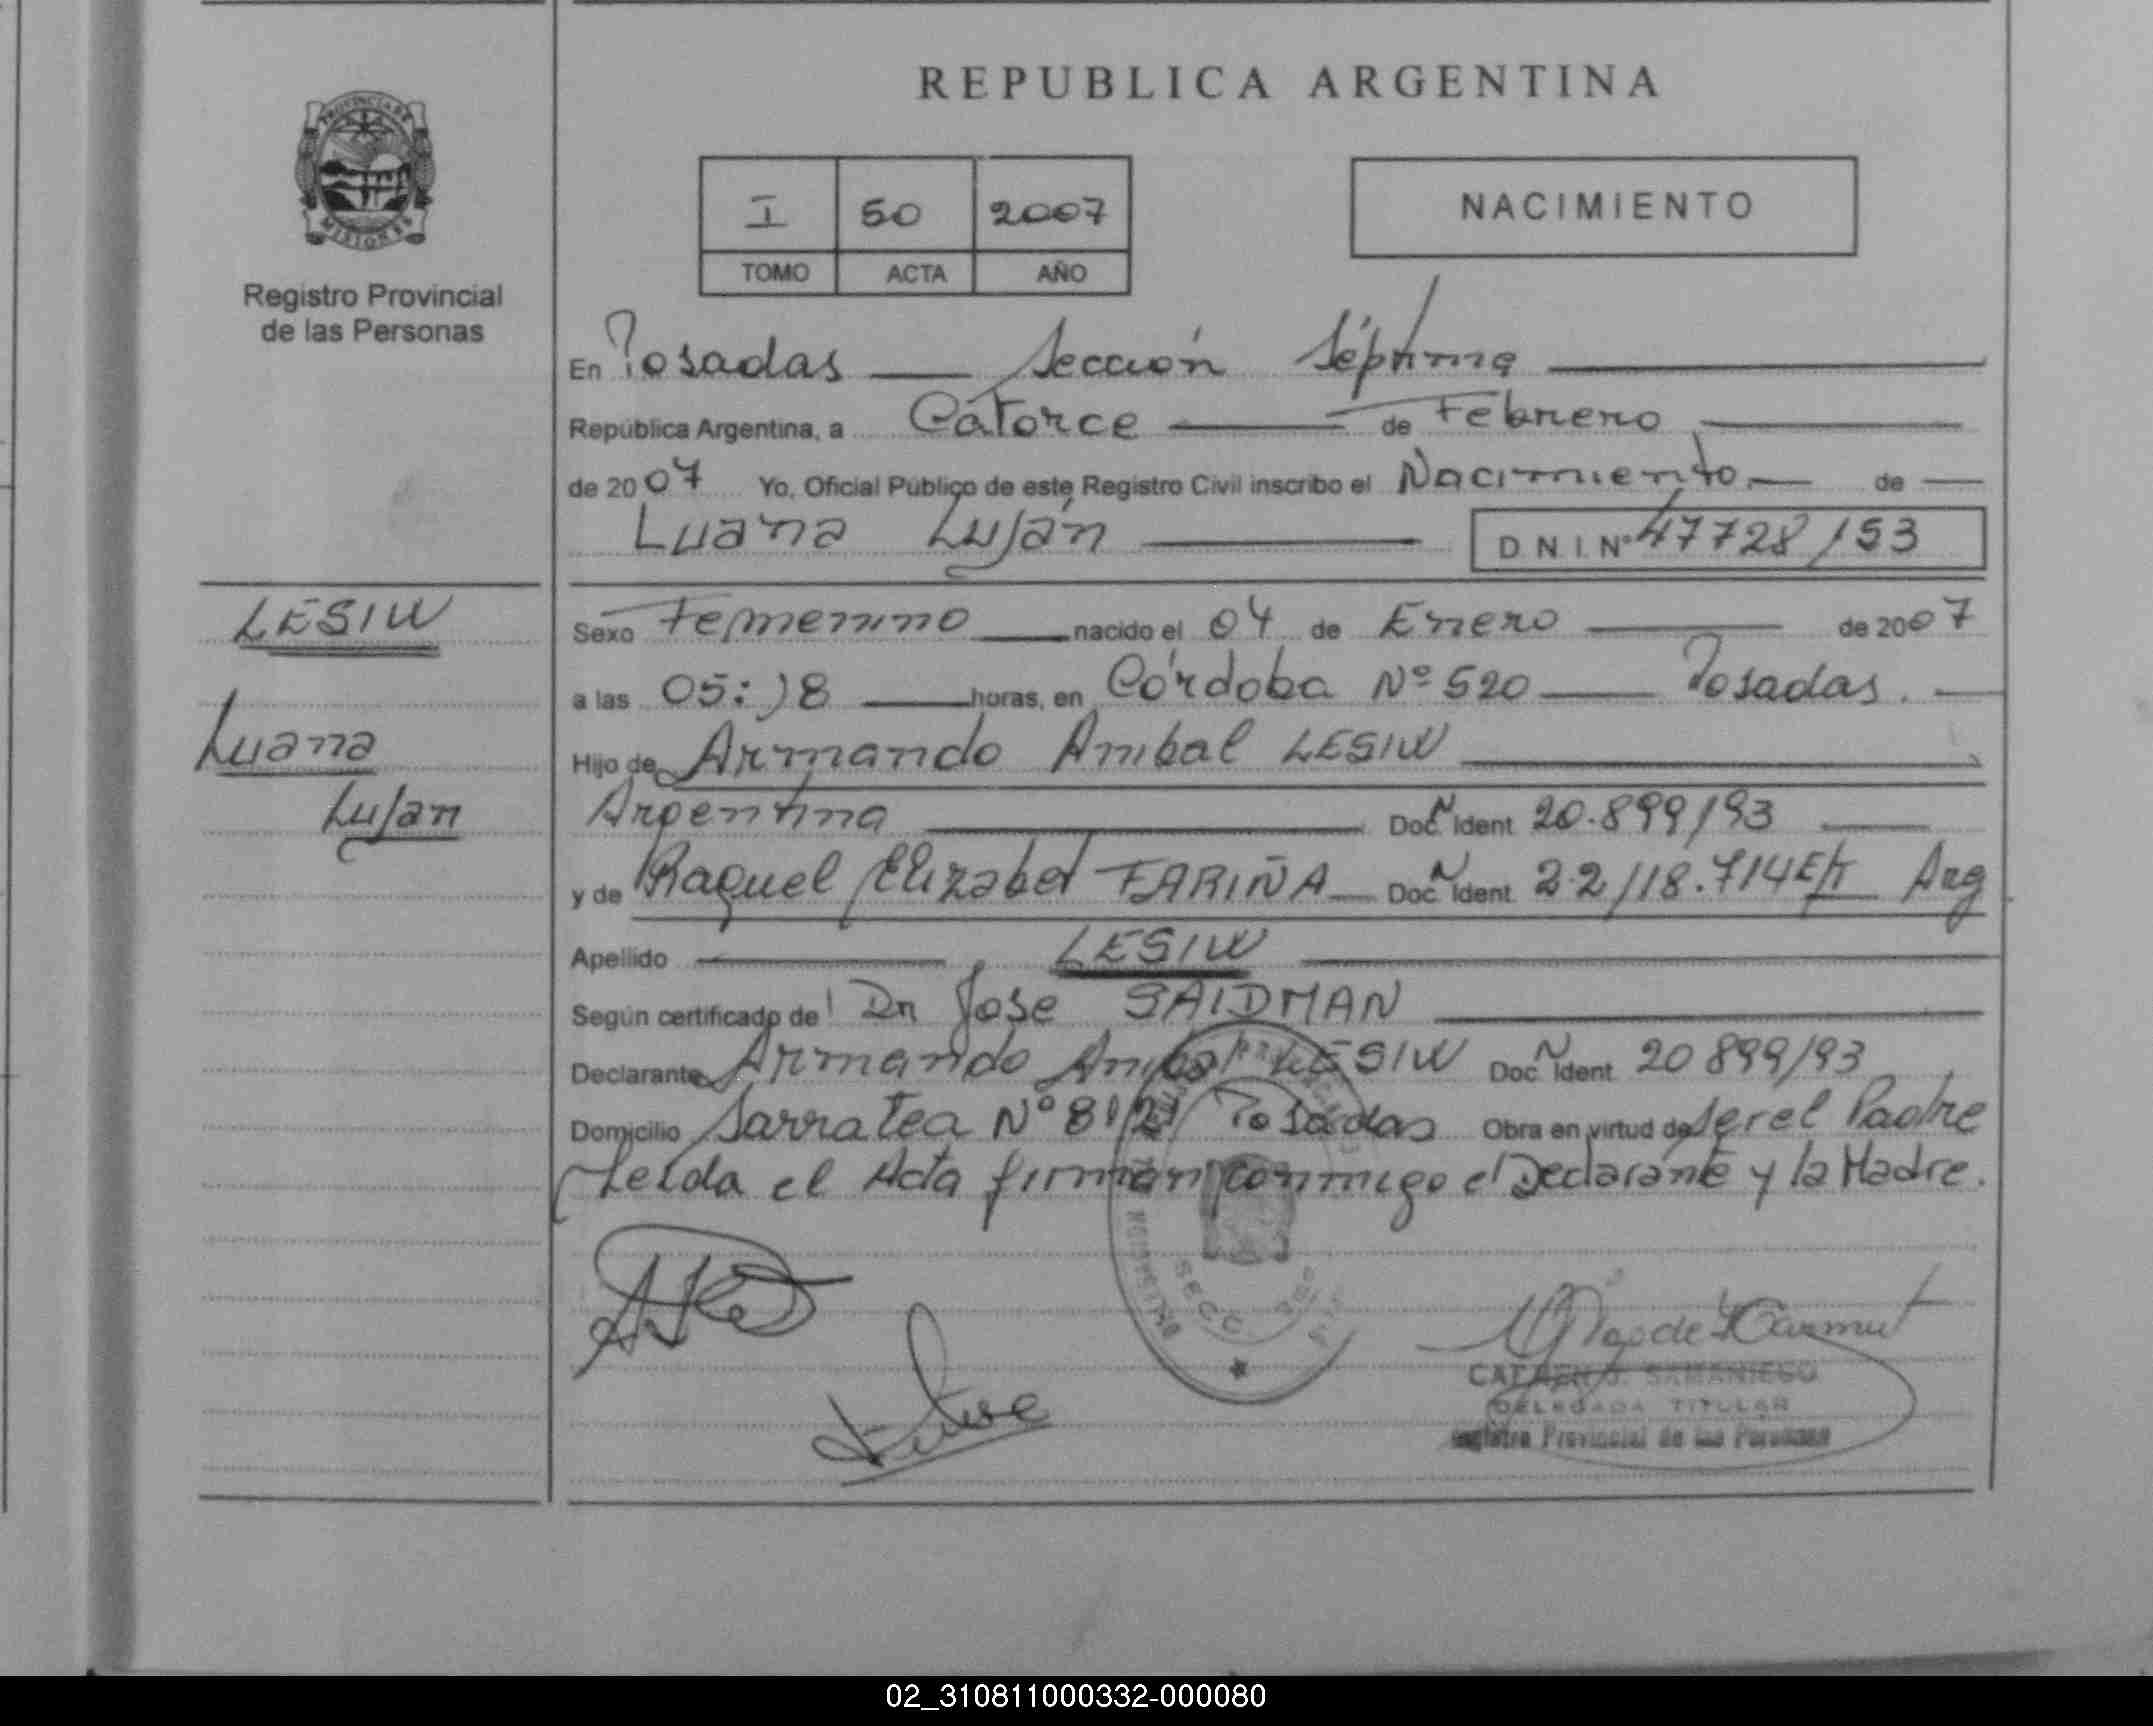 REPUBLICA ARGENTINA
PROVINCIA DE MISIONES
Registro Provincial
de las Personas
I 50 2007
TOMO ACTA AÑO
NACIMIENTO
En Posadas Sección Séptima
República Argentina, a Catorce de Febrero
de 2007 Yo, Oficial Público de este Registro Civil inscribo el Nacimiento de
Luana Luján D N I Nº 47728153
LESIW
Luana
Luján
Sexo Femenino nacido el 04 de Enero de 2007
a las 05:18 horas, en Córdoba Nº 520 Posadas.
Hijo de Armando Anibal LESIW
Argentina Doc. Ident 20.899193
y de Raquel Elizabet FARIÑA Doc. Ident 22118.714 E/t Arg
Apellido LESIW
Según certificado de Dr Jose SAIDMAN
Declarante Armando Anibal LESIW Doc Ident 20 899193
Domicilio Sarratea Nº 8121 Posadas Obra en virtud de ser el Padre
Leída el Acta firman conmigo el Declarante y la Madre.
SECC.
SAMANIEGO
DELEGADA TITULAR
Registro Provincial de las Personas
02_310811000332-000080